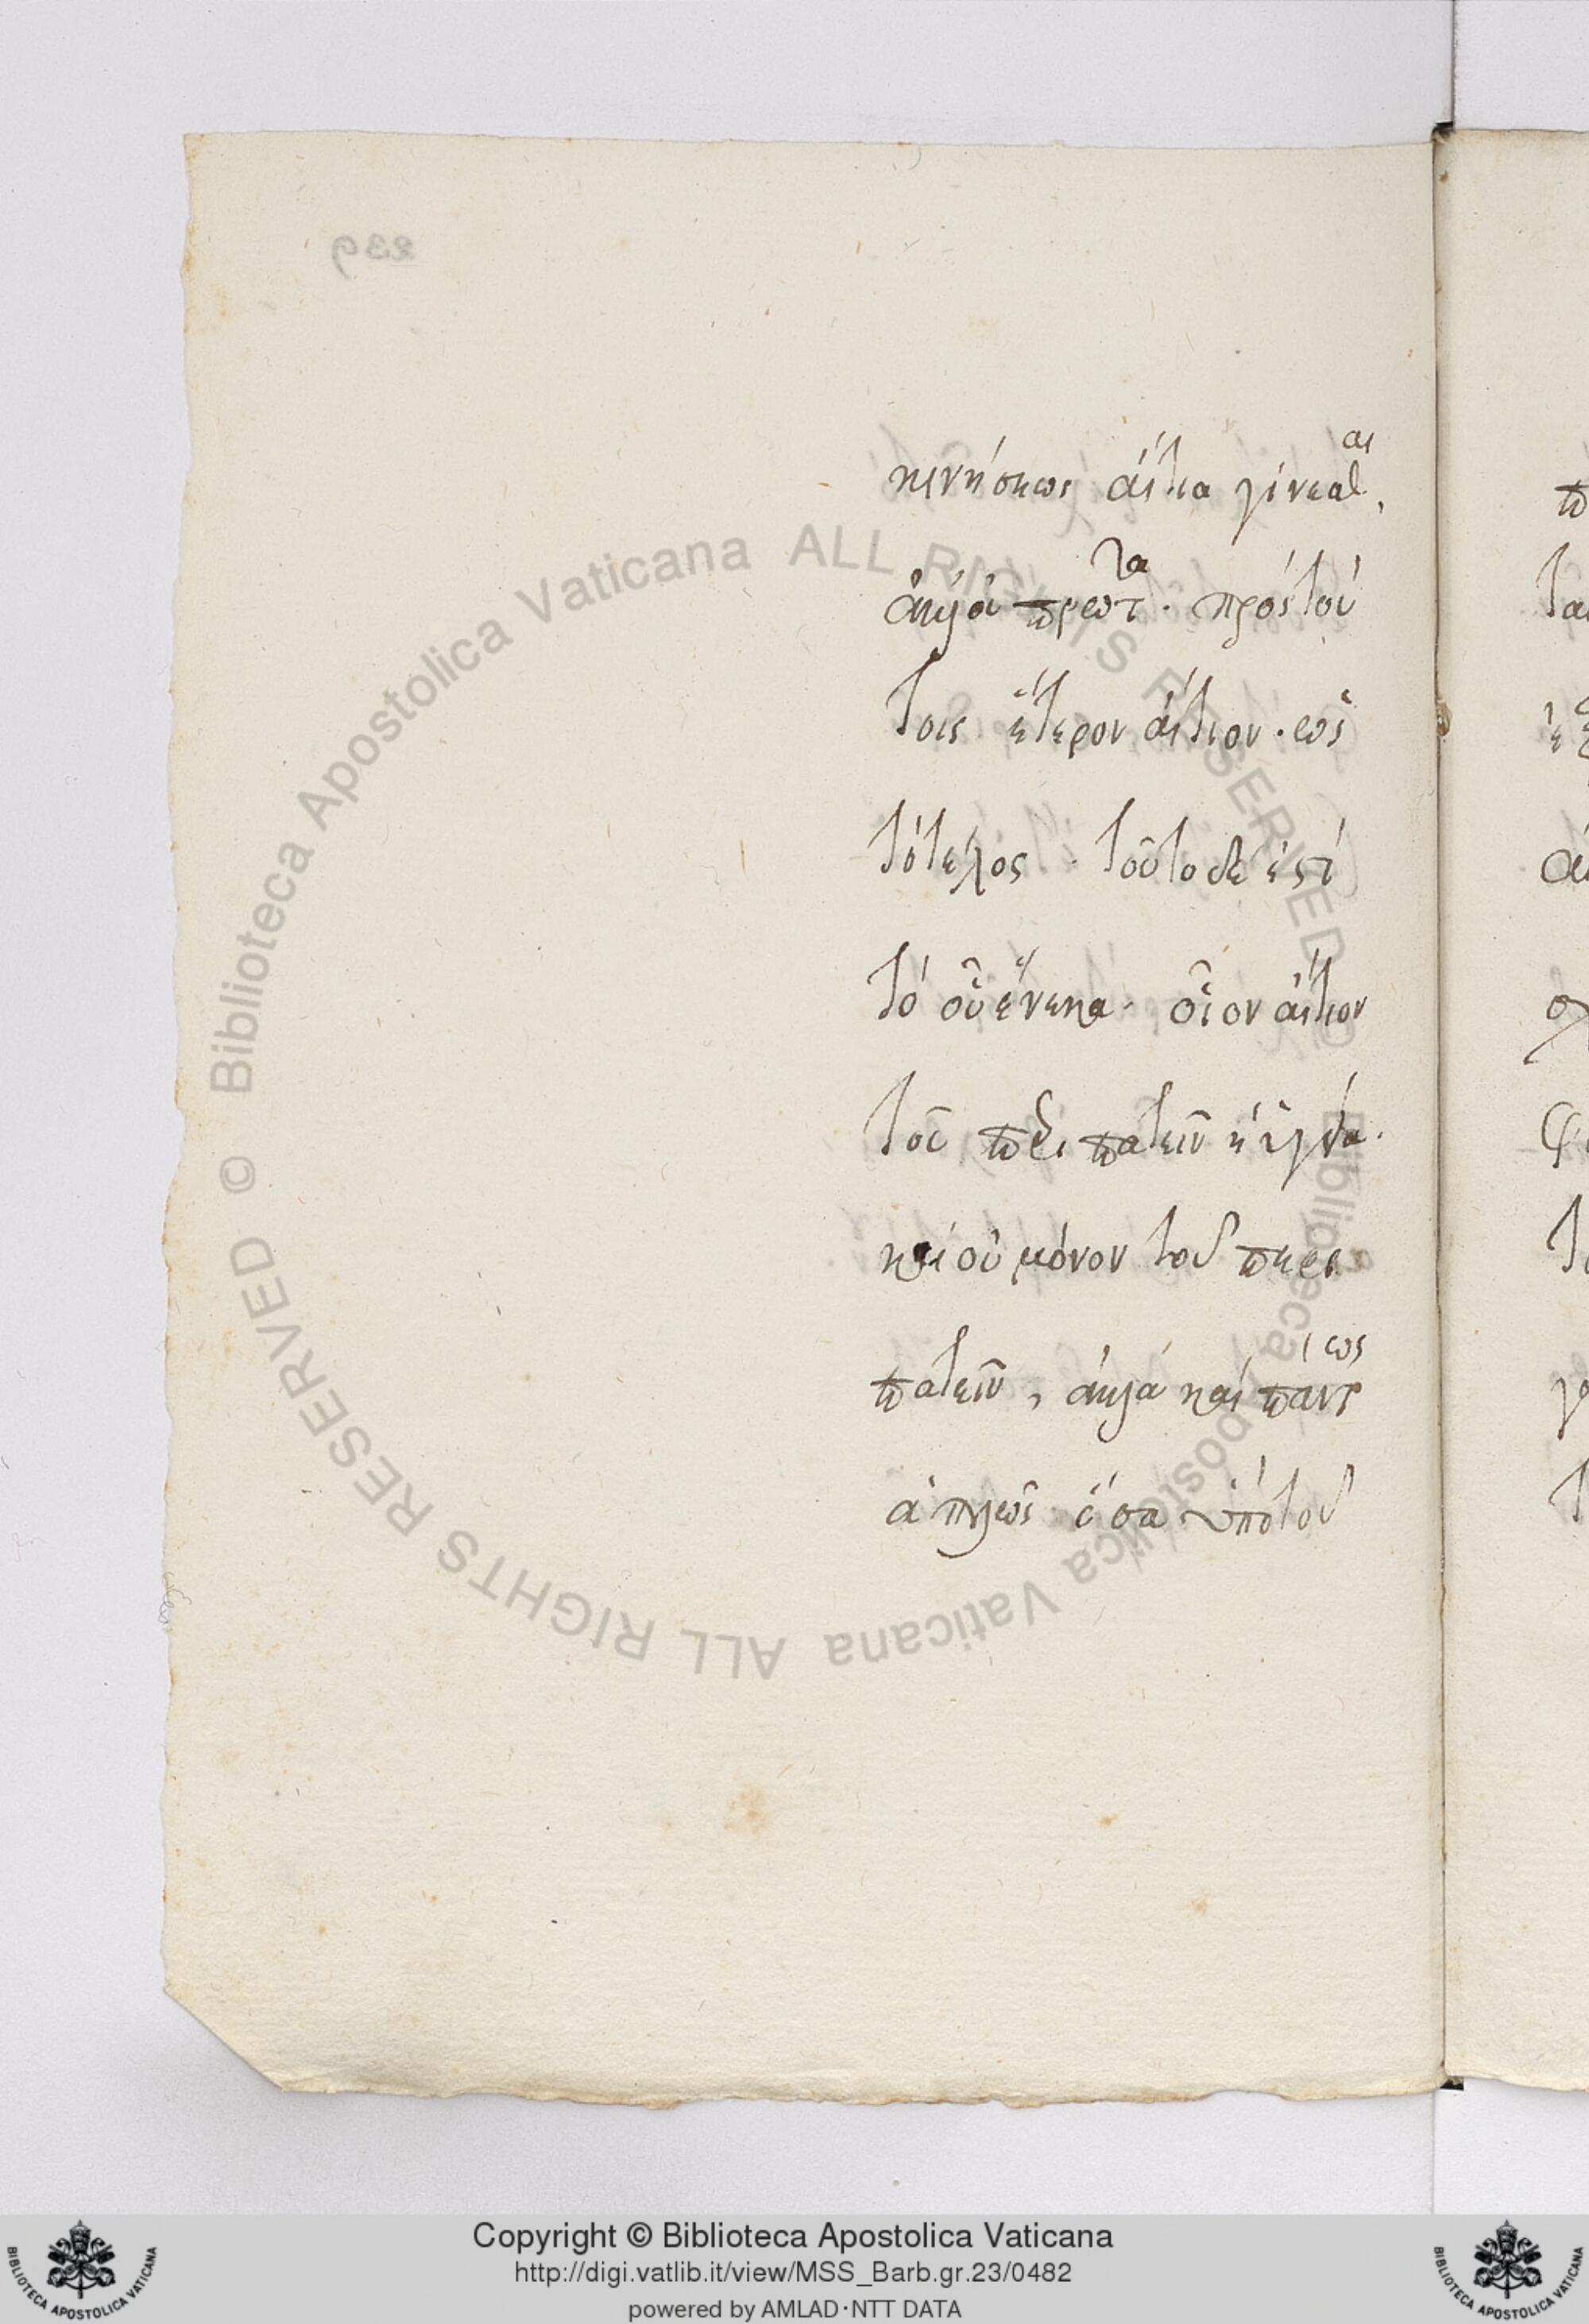 239
κινήσεως ἄιτια γίνεται,
ἀλλὰ πρῶτα. πρὸς τού
τοις ἕτερον ἄιτιον. ὡς
τὸ τέλος. τοῦτο δέ ἐστὶ
τὸ οὗ ἕνεκα. οἷον ἄιτιον
τοῦ περιπατεῖν
καὶ οὐ μόνον τοῦ περι
πατεῖν, ἀλλὰ καὶ παντὸς
ἁπλῶς ὅσα ὑπὸ τοῦ
© Biblioteca Apostolica Vaticana ALL RIGHTS RESERVED © Biblioteca Apostolica Vaticana ALL RIGHTS RESERVED
BIBLIOTECA APOSTOLICA VATICANA
Copyright © Biblioteca Apostolica Vaticana
http://digi.vatlib.it/view/MSS_Barb.gr.23/0482
powered by AMLAD·NTT DATA
BIBLIOTECA APOSTOLICA VATICANA